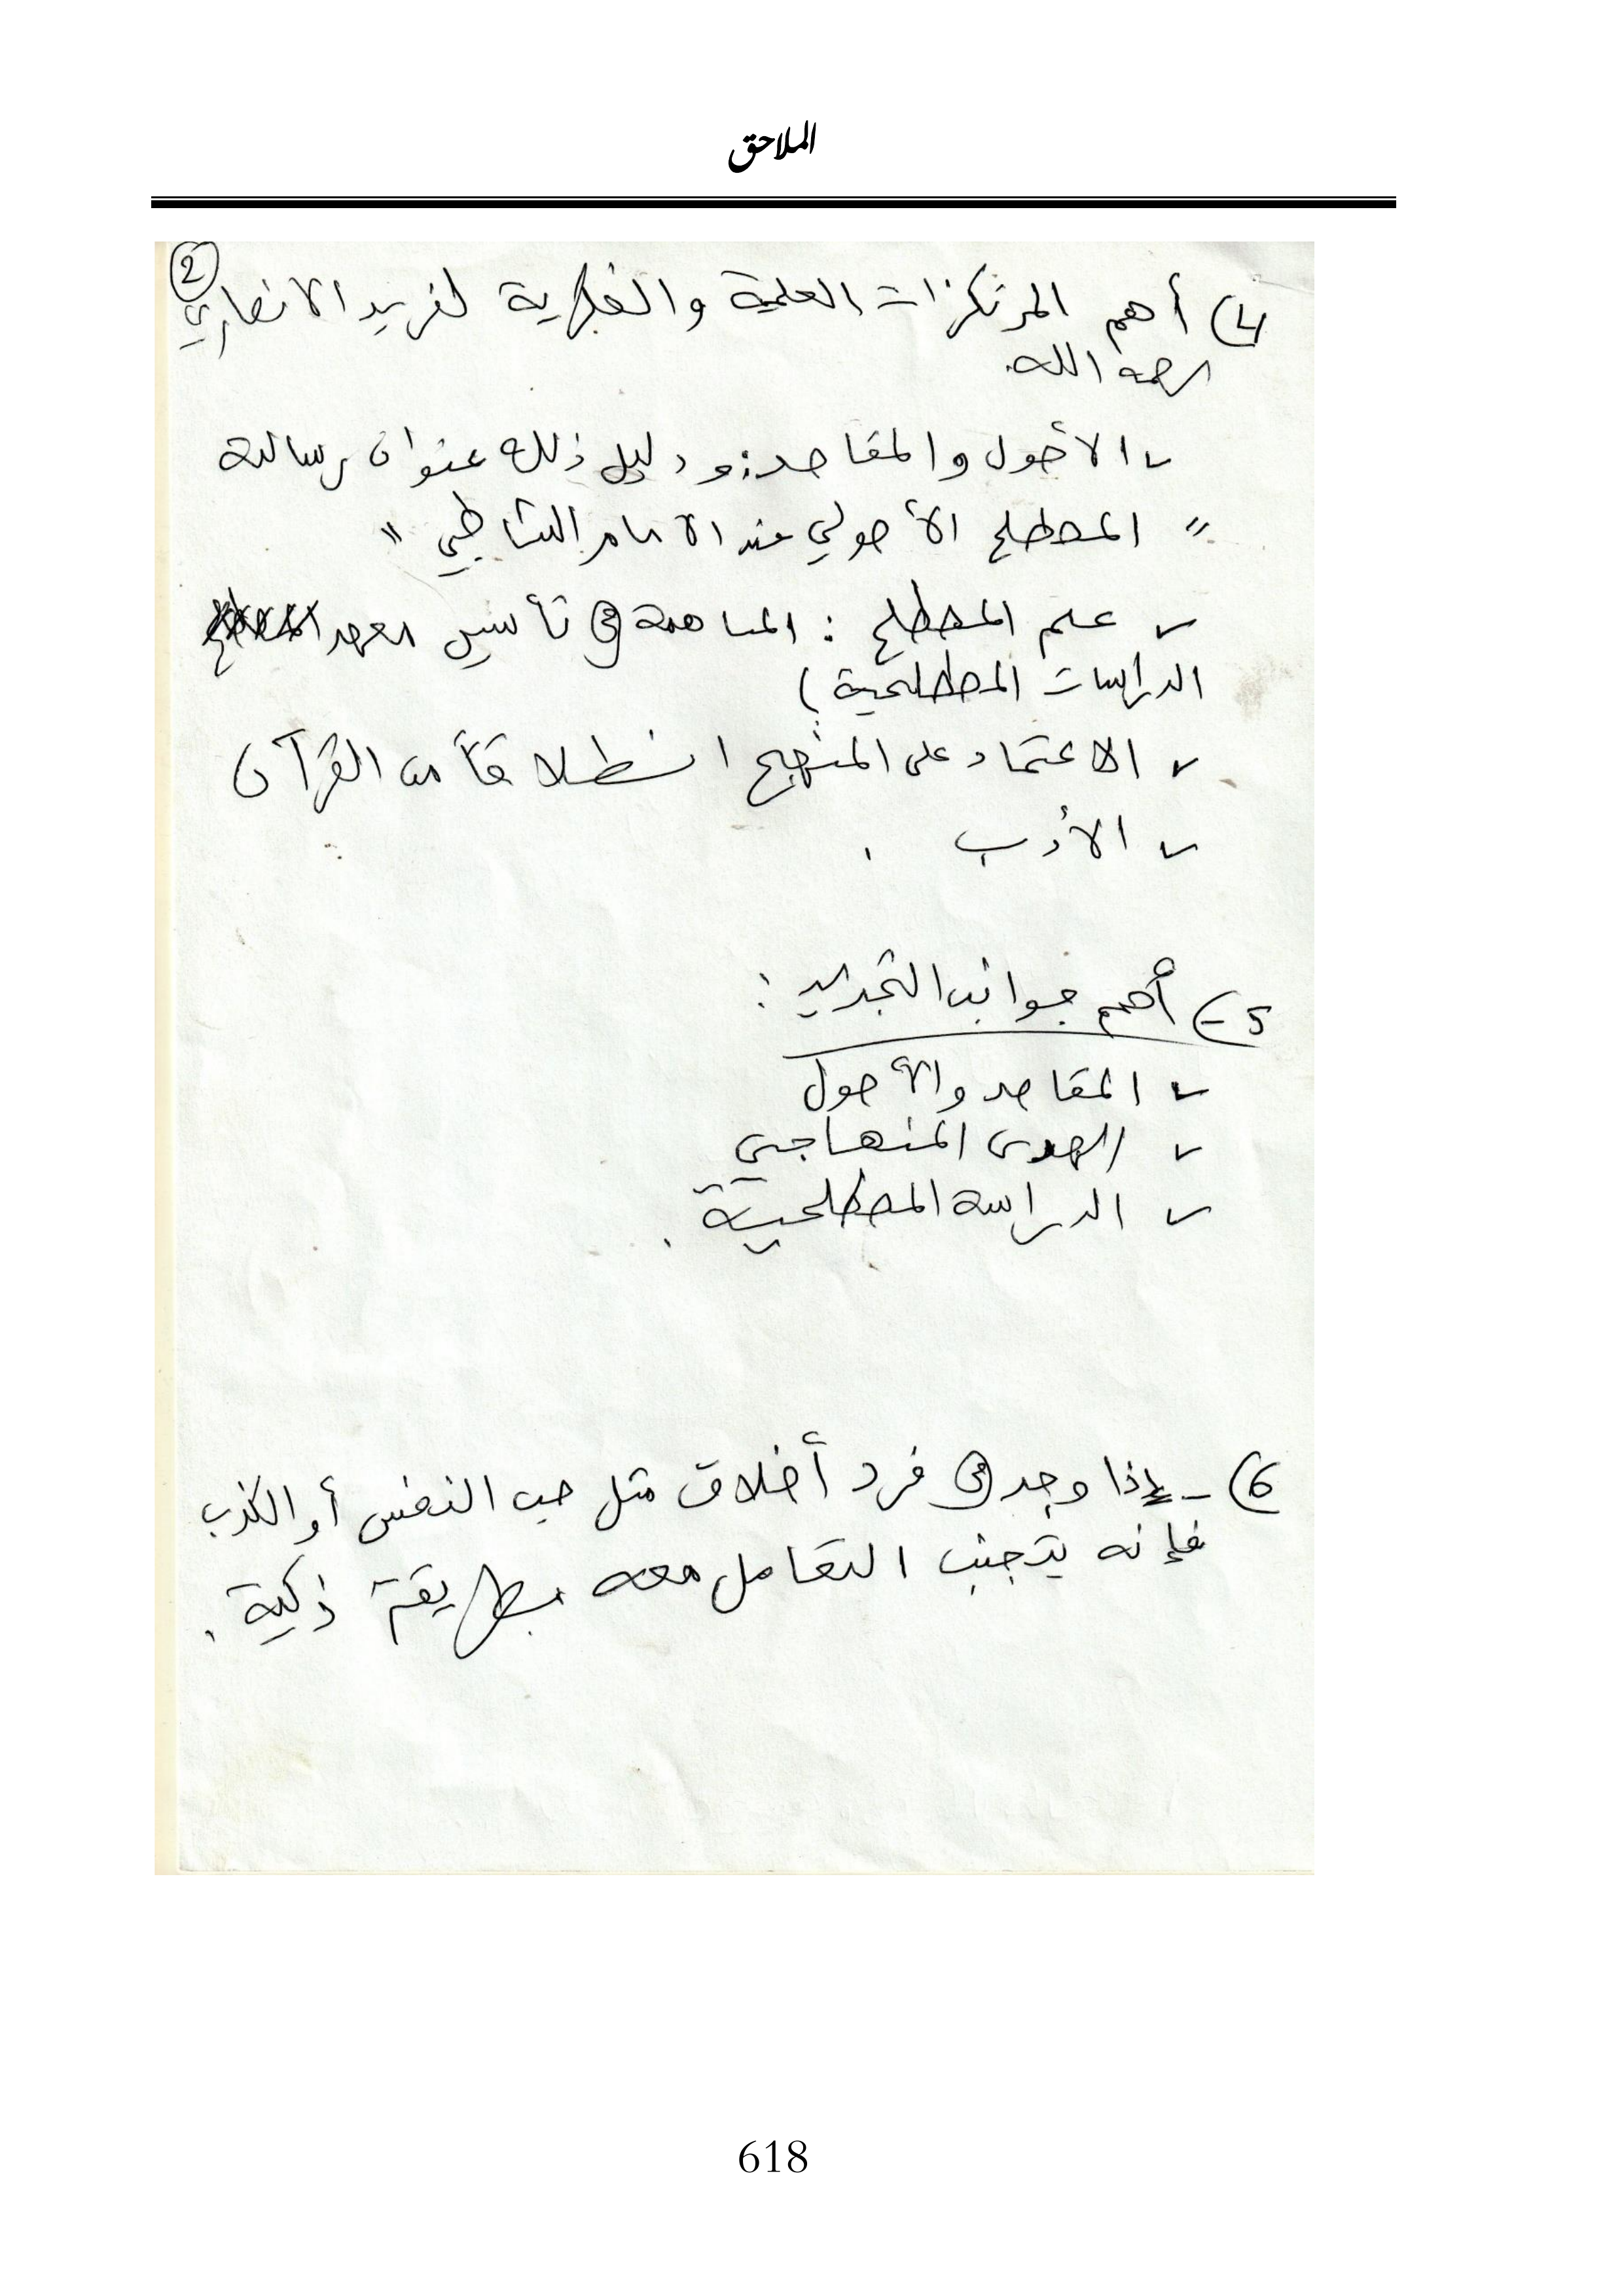 الملاحق
2
4) أهم المرتكزات العلمية والفكرية لفريد الانصاري
رحمه الله.
✓ الأصول والمقاصد: ودليل ذلك عنوان رسالة
" المصطلح الأصولي عند الامام الشاطبي "
✓ علم المصطلح : المساهمة في تأسيس معهد
الدراسات المصطلحية)
✓ الاعتماد على المنهج انطلاقاً من القرآن
✓ الأدب .
5-) أهم جوانب التجديد :
✓ المقاصد والأصول
✓ الهدى المنهاجي
✓ الدراسة المصطلحية .
6) - إذا وجد في فرد أخلاق مثل حب النفس أو الكذب
فإنه يتجنب التعامل معه بطريقة ذكية .
618